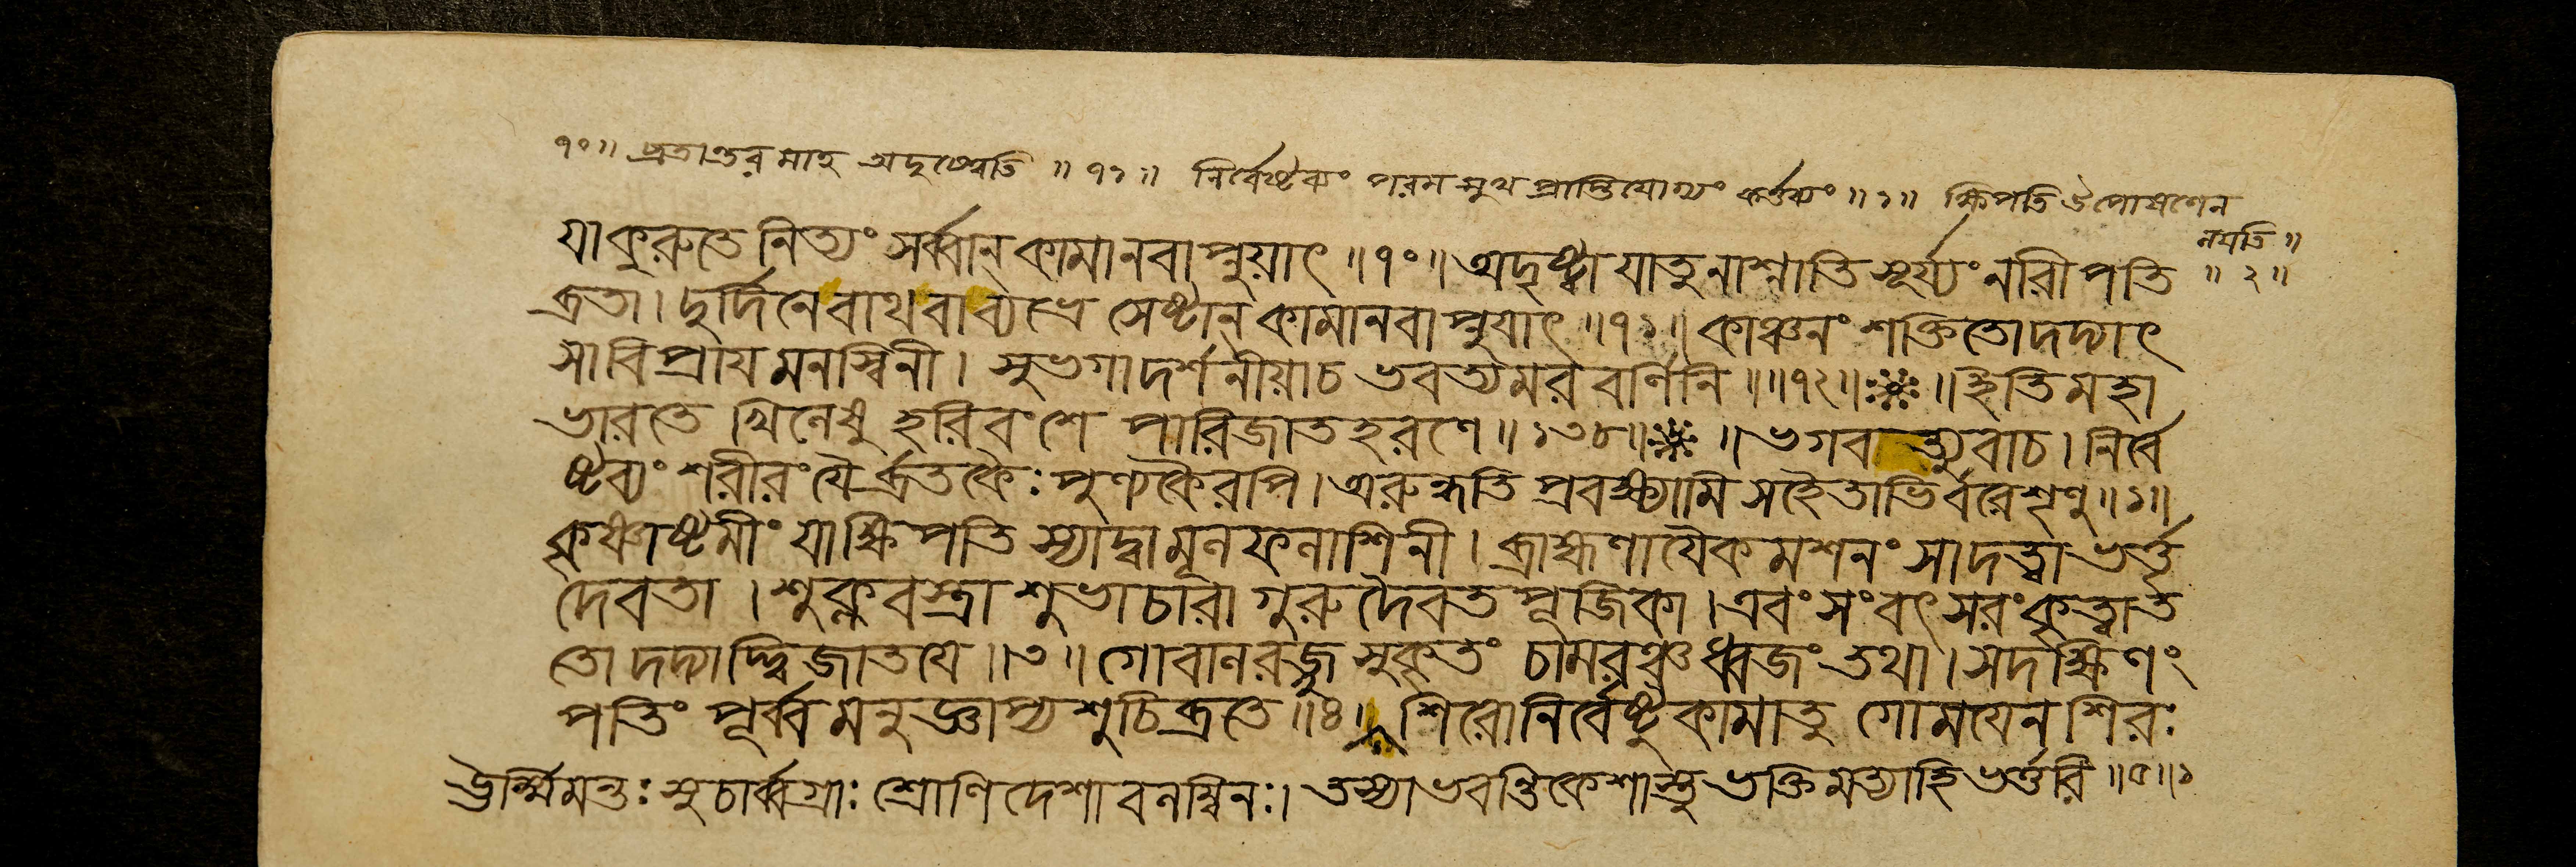 ৭০॥ ব্রতান্তরমাহ অদৃষ্ট্বেতি ॥ ৭১ ॥ নির্বেষ্টব্যং পরমসুখপ্রাপ্তিযোগ্যং কর্ত্তব্যং ॥ ১ ॥ ক্ষিপতি উপোষণেন
নযতি ॥
॥ ২ ॥
যাকুরুতে নিত্যং সর্ব্বান্ কামানবাপ্নুয়াৎ ॥ ৭০ ॥ অদৃষ্ট্বা যাতুনাশ্নাতি সূর্য্যং নারী পতি
ব্রতা। দুর্দিনে বাথবা ব্যভ্রে সেষ্টান্ কামানবাপ্নুযাৎ ॥ ৭১ ॥ কাঞ্চনং শক্তিতো দদ্যাৎ
সা বিপ্রায মনস্বিনী। সুভগা দর্শনীয়া চ ভবত্যমরবর্ণিনি ॥ ॥ ৭২ ॥ ॥ ইতি মহা
ভারতে খিলেষু হরিবংশে পারিজাতহরণে ॥ ১৩৮ ॥ ॥ ভগবত্যুবাচ। নির্বে
ষ্টব্যং শরীরং যৈ র্ব্রতকৈঃ পুণ্যকৈরপি। অরুন্ধতি প্রবক্ষ্যামি সহৈতাভির্বরে শৃণু ॥ ১ ॥
কৃষ্ণাষ্টমীং যা ক্ষিপতি স্যাদ্বা মূলফলাশিনী। ব্রাহ্মণাযৈকমশনং সা দত্ত্বা ভর্ত্তৃ
দেবতা। শুক্লবস্ত্রা শুভাচারা গুরুদৈবতপূজিকা। এবং সংবৎসরং কৃত্বা ত
তো দদ্যাদ্দ্বিজাতযে ॥ ৩ ॥ গোবালরজ্জু সুকৃতং চামরঞ্চ ধ্বজং তথা। সদক্ষিণং
পতিং পূর্ব্বমনুজ্ঞাপ্য শুচিব্রতে ॥ ৪ ॥ শিরোনির্বেষ্টুকামা তু গোমযেন শিরঃ
ঊর্ম্মিমন্তঃ সুচার্ব্বগ্রাঃ শ্রোণিদেশাবলম্বিনঃ। তস্যা ভবন্তি কেশাস্তু ভক্তিমত্যা হি ভর্ত্তরি ॥ ৫ ॥ ১